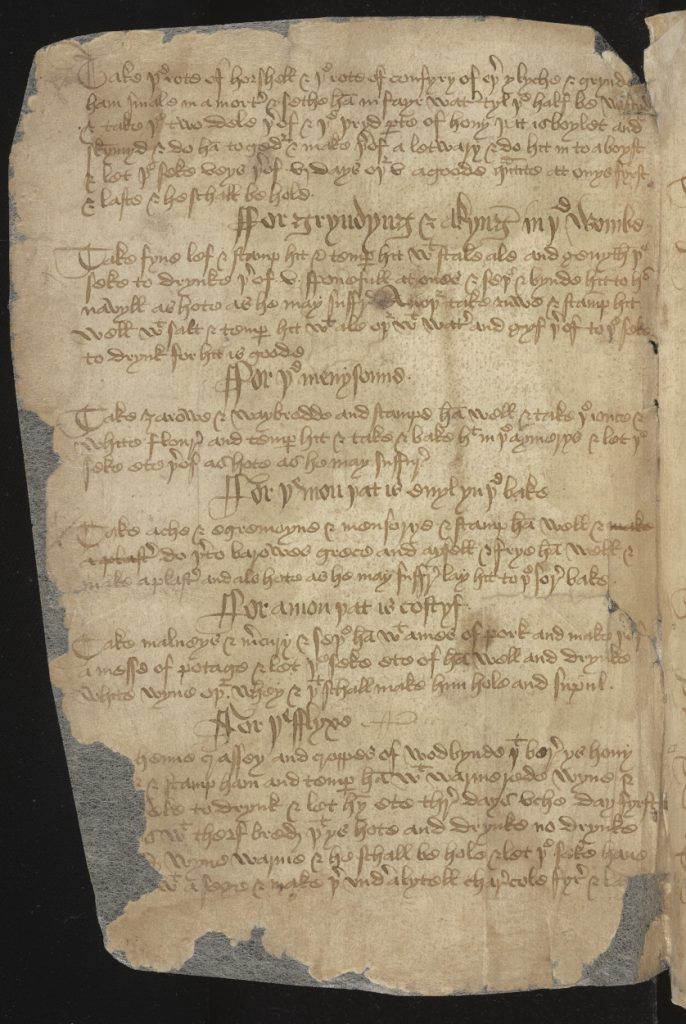 Take þe rote of horshell & þe rote off confyry of eyþer ylyche & grynde
ham smale in a morter & sethe hem in fayre water tyl þe half be
& take þe two dele þerof & þe þryd perte of hony þat is boylet and
skymyd & do ham to geder & make þerof a letwary & do hit in to a boyst
& let þe seke vse þerof v days oþer v a goode quantite at onys fyrst
& laste & he schall be hole
For gryndyng & akyng in þe Wombe
Take fyne lof & stamp hit & temper hit wt stale ale and þe
seke to drynke þerof v sponefull at ones & seþe & bynde hit to his
navyll as hote as he may suffyr Anoþer take ruwe & stamp hit
well wt salt & temper hit wt ale oþer wt water and gyf þerof to þe seke
to drynk for hit is goode
For þe menysoun
Take ȝarowe & waybredde and stampe ham well & take þe iouce &
white flour and temper hit & take & bake hit in þe aymerys & let þe
seke ete þerof as hote as he may suffyr
For þe mon þat is evyl yn þe bake
Take ache & egremoyne & & stamp ham well & make
a plaster do þerto barowes grece and aysell & frye ham well &
make a plaster and als hote as he may suffyr lay hit to þe sore bake
For a mon þat is costyf
Take malueys & mercury & seþe ham wt a mes of pork and make þerof
a messe of potage & let þe seke ete of ham well and drynke
white wyne oþer whey & þt schall make him hole and
For þe fflyxe
and croppes of wodbynde þt bereþ ys hony
& stamp ham and temper ham wt warme rede wyne &
seke to drynk & let hym ete thre days vche day fyrst
wt therf bred þt ys hote and drynke no drynke
wyne warme & he schall be hole & let þe seke haue
wt a sege & make þer vnder a lytell charcole fyre & le